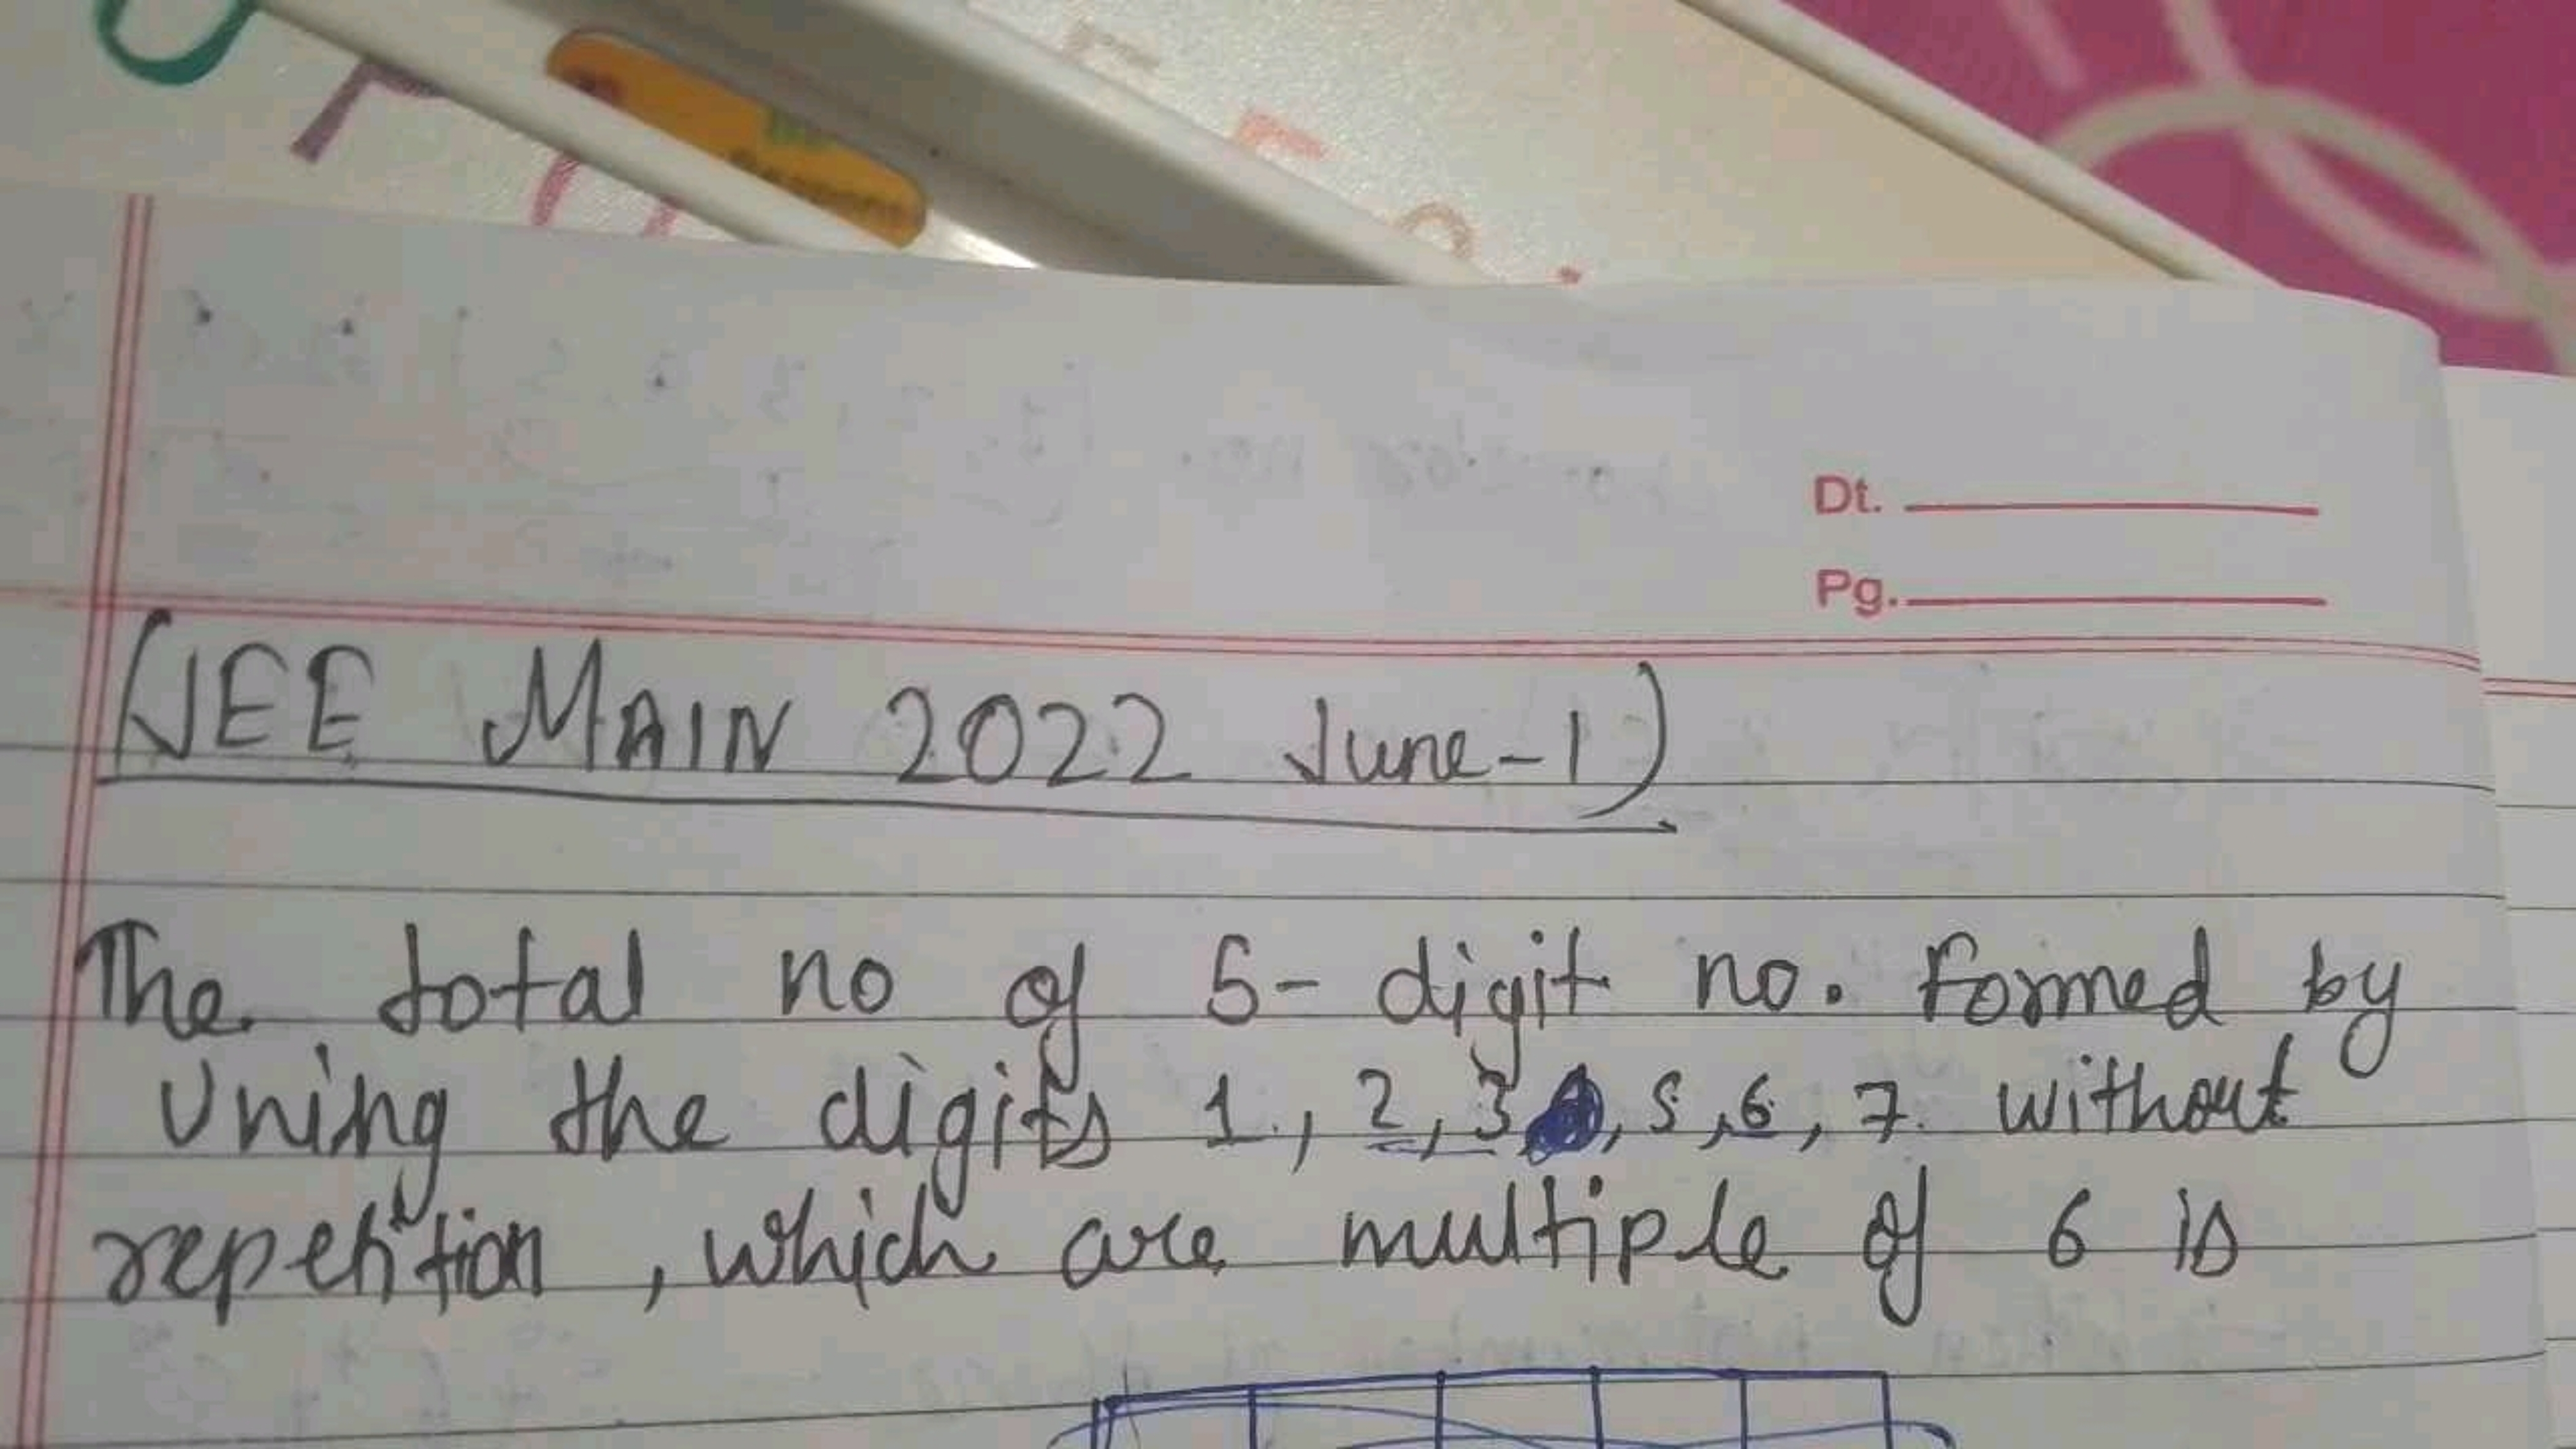 Dt.
Pg.
(JEE MAIN 2022 June-1)
The total no of 5- digit no. formed by
Uning the digits 1, 2, 3, 5, 6, 7. without
repetition, which are multiple of 6 is